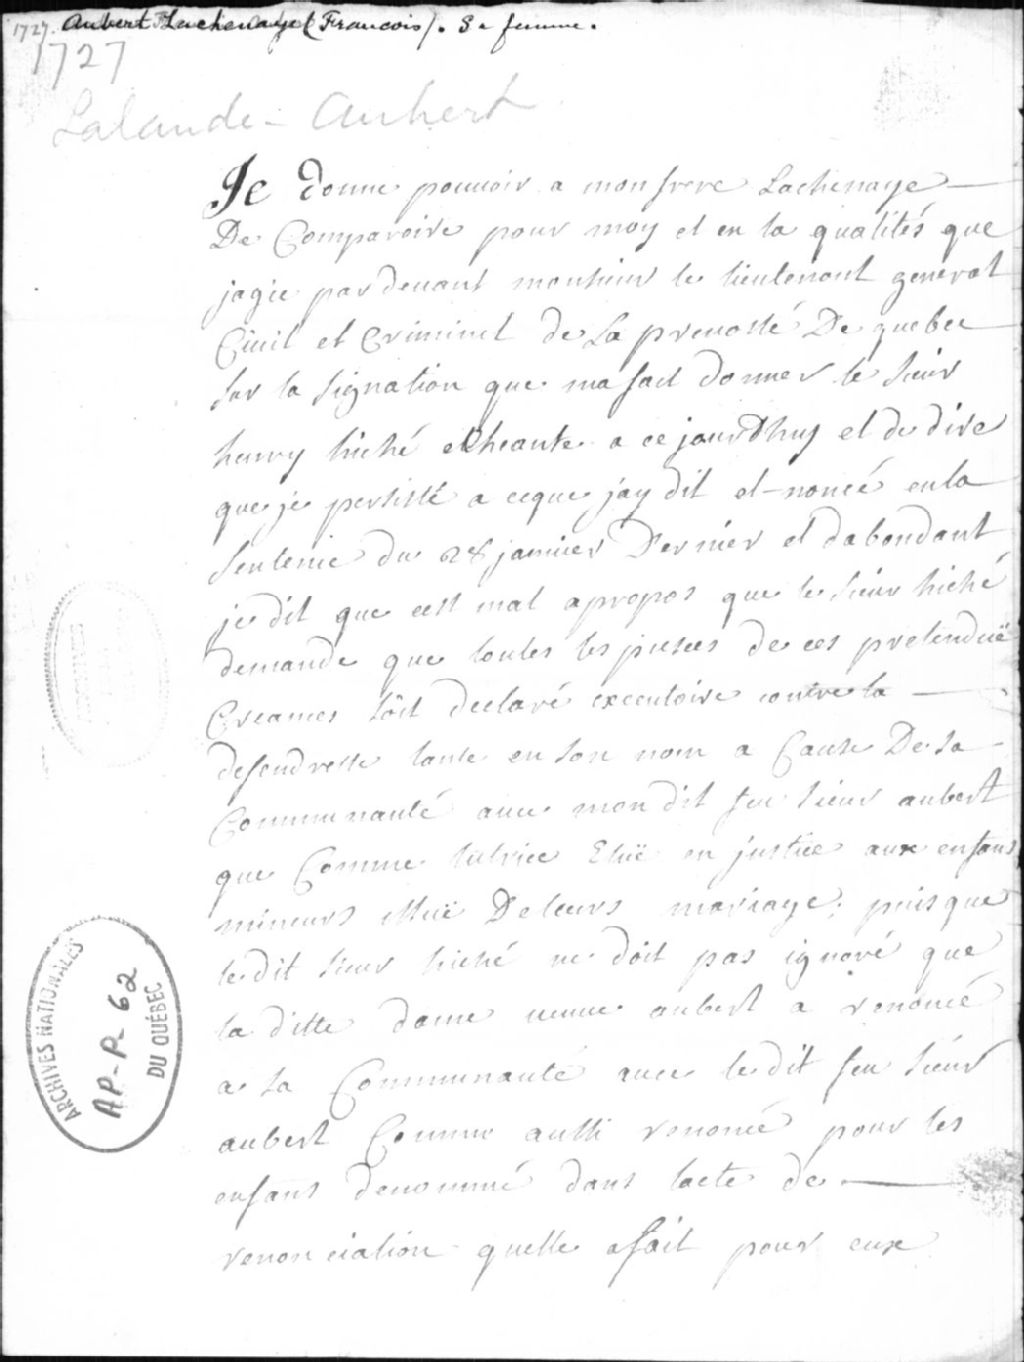 1727. Aubert Lachenaye (Francois). Sa femme.
1727
Lalande - Aubert
Je donne pouvoir a mon frere Lachenaye
De Comparoire pour moy et en la qualités que
jagie par devant monsieur le lieutenant general
Civil et Criminel de La prevosté De quebec
sur la signation que ma fait donner le sieur
henry hiché echeante a ce jourdhuy et de dire
que je persiste a ceque jay dit et noncé en la
sentence du 28 janvier Dernier et dabondant
je dit que cest mal apropos que le sieur hiché
demande que toutes les pieces de ces pretenduë
Creances soit declaré executoire contre la
defendresse tante en son nom a Cause De sa
Communauté avec mon dit feu sieur aubert
que Comme tutrice Eluë en justice aux enfans
mineurs issuë De leurs mariage, puis que
le dit sieur hiché ne doit pas ignoré que
la ditte dame veuve aubert a renoncé
a la Communauté avec le dit feu sieur
aubert Comme aussi renoncé pour les
enfans denommé dans lacte de
renonciation quelle a fait pour eux
ARCHIVES NATIONALES
AP-P-62
DU QUÉBEC